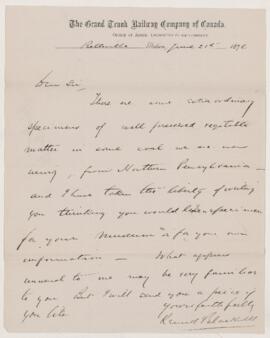 The Grand Trunk Railway Company of Canada.
Belleville June 21st 1876
Dear Sir,
There are some extraordinary
specimens of well preserved vegetable
matter in some coal we are now
using, from Northern Pennsylvania -
and I have taken the liberty of writing
you thinking you would like specimen
for your museum or for your own
information - What appears
unusual to me may be very familiar
to you but I will send you a piece if
you like.
Yours faithfully